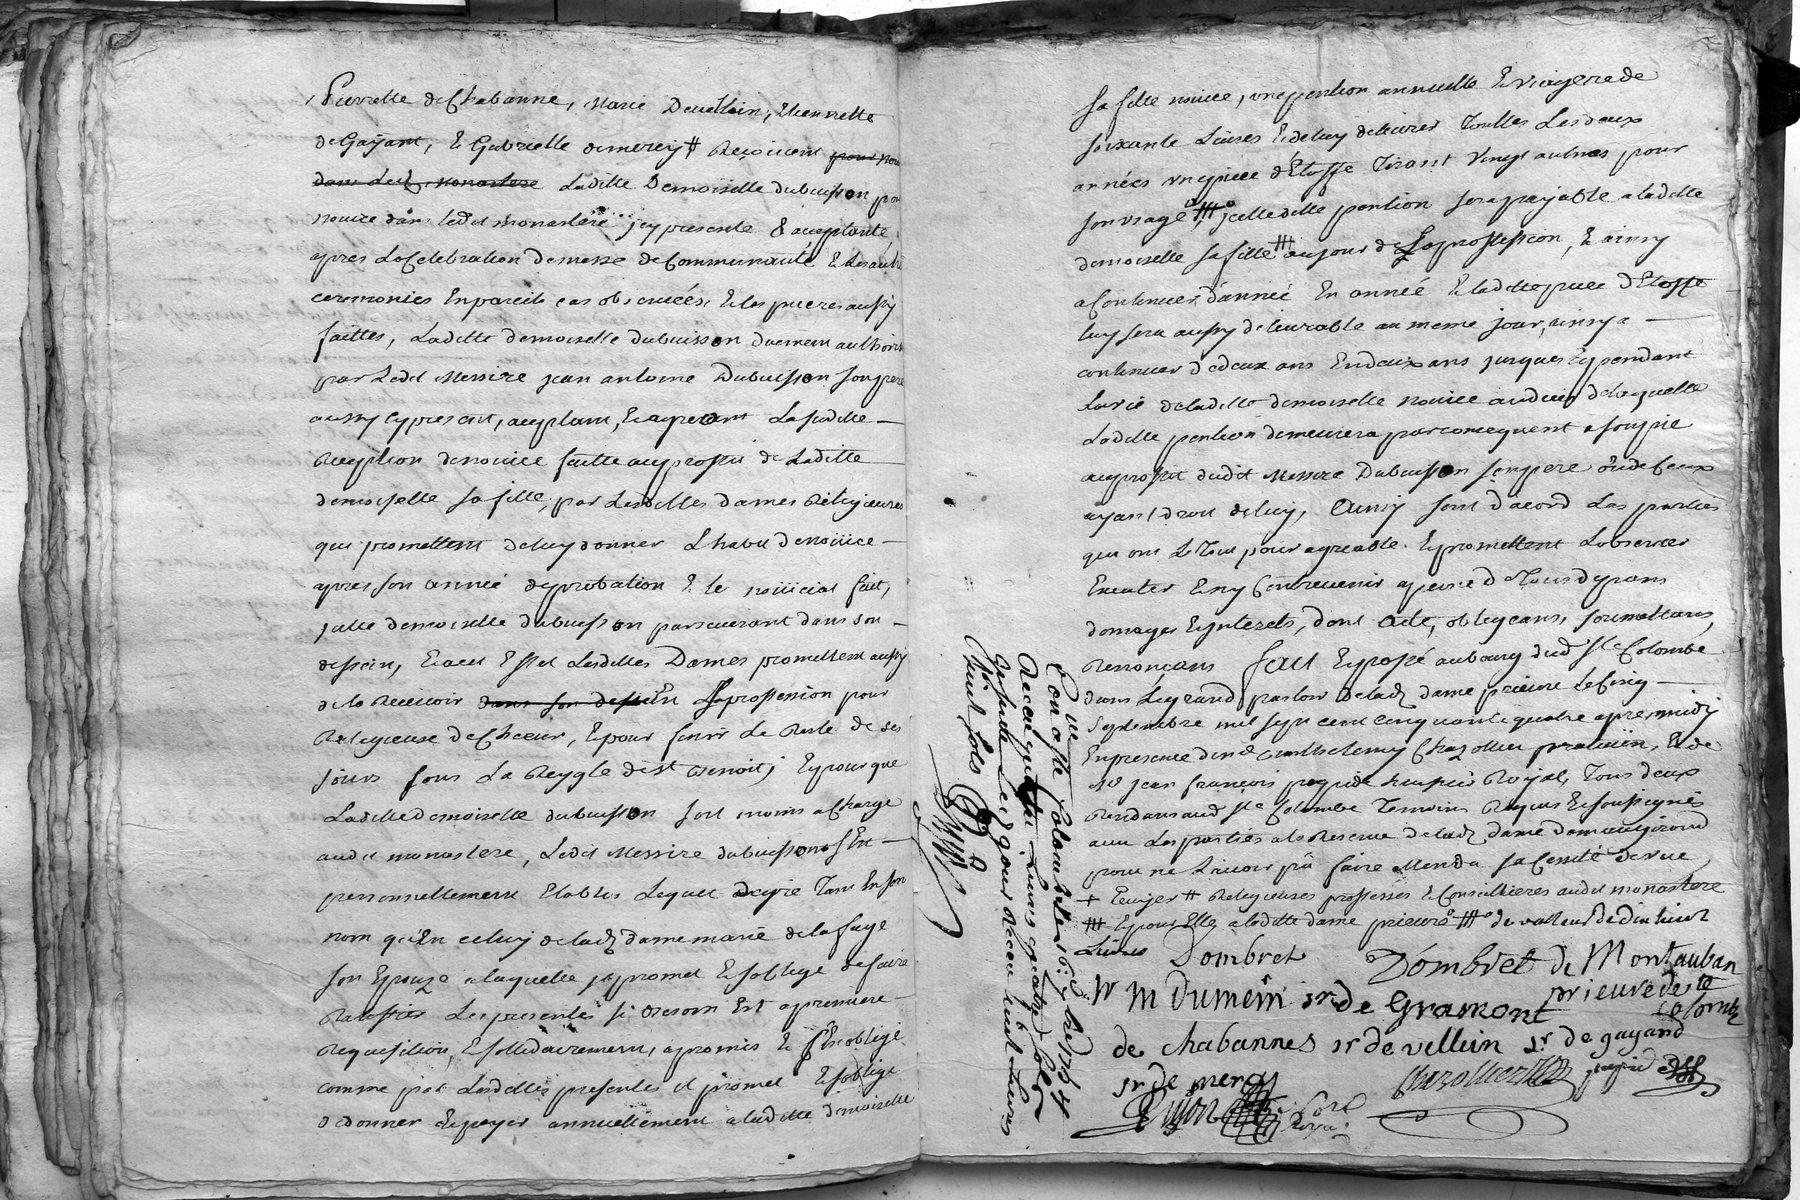 Pierrette de Chabanne, Marie Deuellein, Etiennette
de Gayant, & Gabrielle demerey # Reçoivent pour nou
dans led monastere Laditte Demoiselle dubuisson pour
novice dans ledit monastere jcy presente & acceptante
apres La Celebration de messe de Communauté & Les autres
ceremonies En pareils cas observées, & les prieres aussy
faittes, Laditte demoiselle dubuisson duement authorisée
par Ledit Messire jean antoine Dubuisson son pere
aussy Cy present, acceptant, & agreant La susditte
Reception de novice faitte au proffit de Laditte
demoiselle sa fille, par Lesdittes dames Religieuses
qui promettent de luy donner L'habit de novice
apres son année de probation & le noviciat fait,
jcelle demoiselle dubuisson perseverant dans son
dessein, & a cet Effet Lesdittes Dames promettent aussy
de la Recevoir dans son dessein En La profession pour
Religieuse de Choeur, & pour finir Le Reste de ses
jours sous La Reygle de st Benoit; & pour que
Laditte demoiselle dubuisson soit moins a Charge
audit monastere, Ledit Messire dubuisson s'Est
personnellement Etablis Lequel de gré Tant En son
nom qu'En celuy de lad dame marie de la faye
son Epouze a laquelle jl promet & s'oblige de faire
Ratiffier Les presentes si besoin Est a premiere
Requisition, & sollidairement, a promis & s'Est obligé
comme par Lesdittes presentes jl promet & s'oblige
de donner & payer annuellement a laditte demoiselle
sa fille novice, une pention annuelle & viagere de
soixante Livres & de luy delivrer Touttes Les deux
années une piece d'Etoffe Tirant Vingt aulnes pour
son usage, jcelle ditte pention sera payable a laditte
demoiselle sa fille # au jour de sa proffession, & ainsy
a Continuer d'année En année & laditte piece d'Etoffe
luy sera aussy delivrable au meme jour, ainsy a
continuer de deux ans En deux ans jusques & pendant
La vie de laditte demoiselle novice au deces de Laquelle
Laditte pention demeurera par consequent assoupie
au proffit dudit Messire Dubuisson son pere ou de Ceux
ayant droit de luy, Ainsy sont d'acord Les parties
qui ont Le Tout pour agreable & promettent L'observer
Executer & ny Contrevenir a peine de Tous depans
domages & jnterets, dont Acte, obligeans, soumettans,
Renonçans fait & passé au bourg dud Ste Colombe
dans Le grand parloir de lad dame prieure Le Cinq
Septembre mil sept cent cinquante quatre apres midy
En presence de mr Barthelemy Chazottier praticien, & de
Mr jean françois huissier Royal, Tous deux
Residans aud Ste Colombe Temoins Requis & soussignés
avec Les parties a la Reserve de lad dame
pour ne L'avoir pû faire Attendu sa Cessité de vue
+ Ecuyer # Religieuses professes & Conseilleres audit monastere
# & pour Elle a laditte dame prieure # de valleur de dix huit
Livres Dombret Dombret de Montauban
prieure de ste
colombe
sr M Dumein sr de Gramont
de chabannes sr de vellein sr de gayand
sr de merey Chazottier
Royal
Con a ste Colombe Le 16 7bre 1754
Recu
huit sols